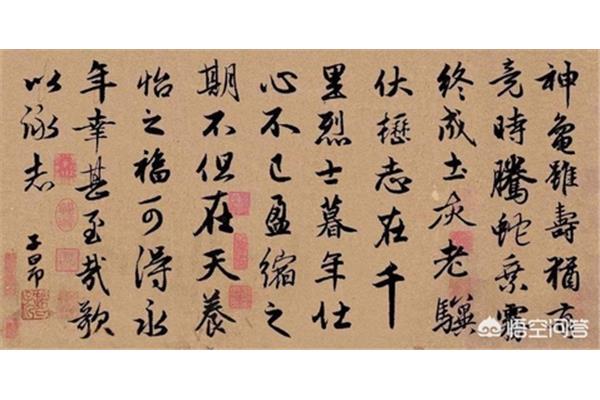 神龜雖壽猶有
竟時騰蛇乘霧
終成土灰老驥
伏櫪志在千
里烈士暮年壯
心不已盈縮之
期不但在天養
怡之福可得永
年幸甚至哉歌
以詠志
子昂
悟空问答